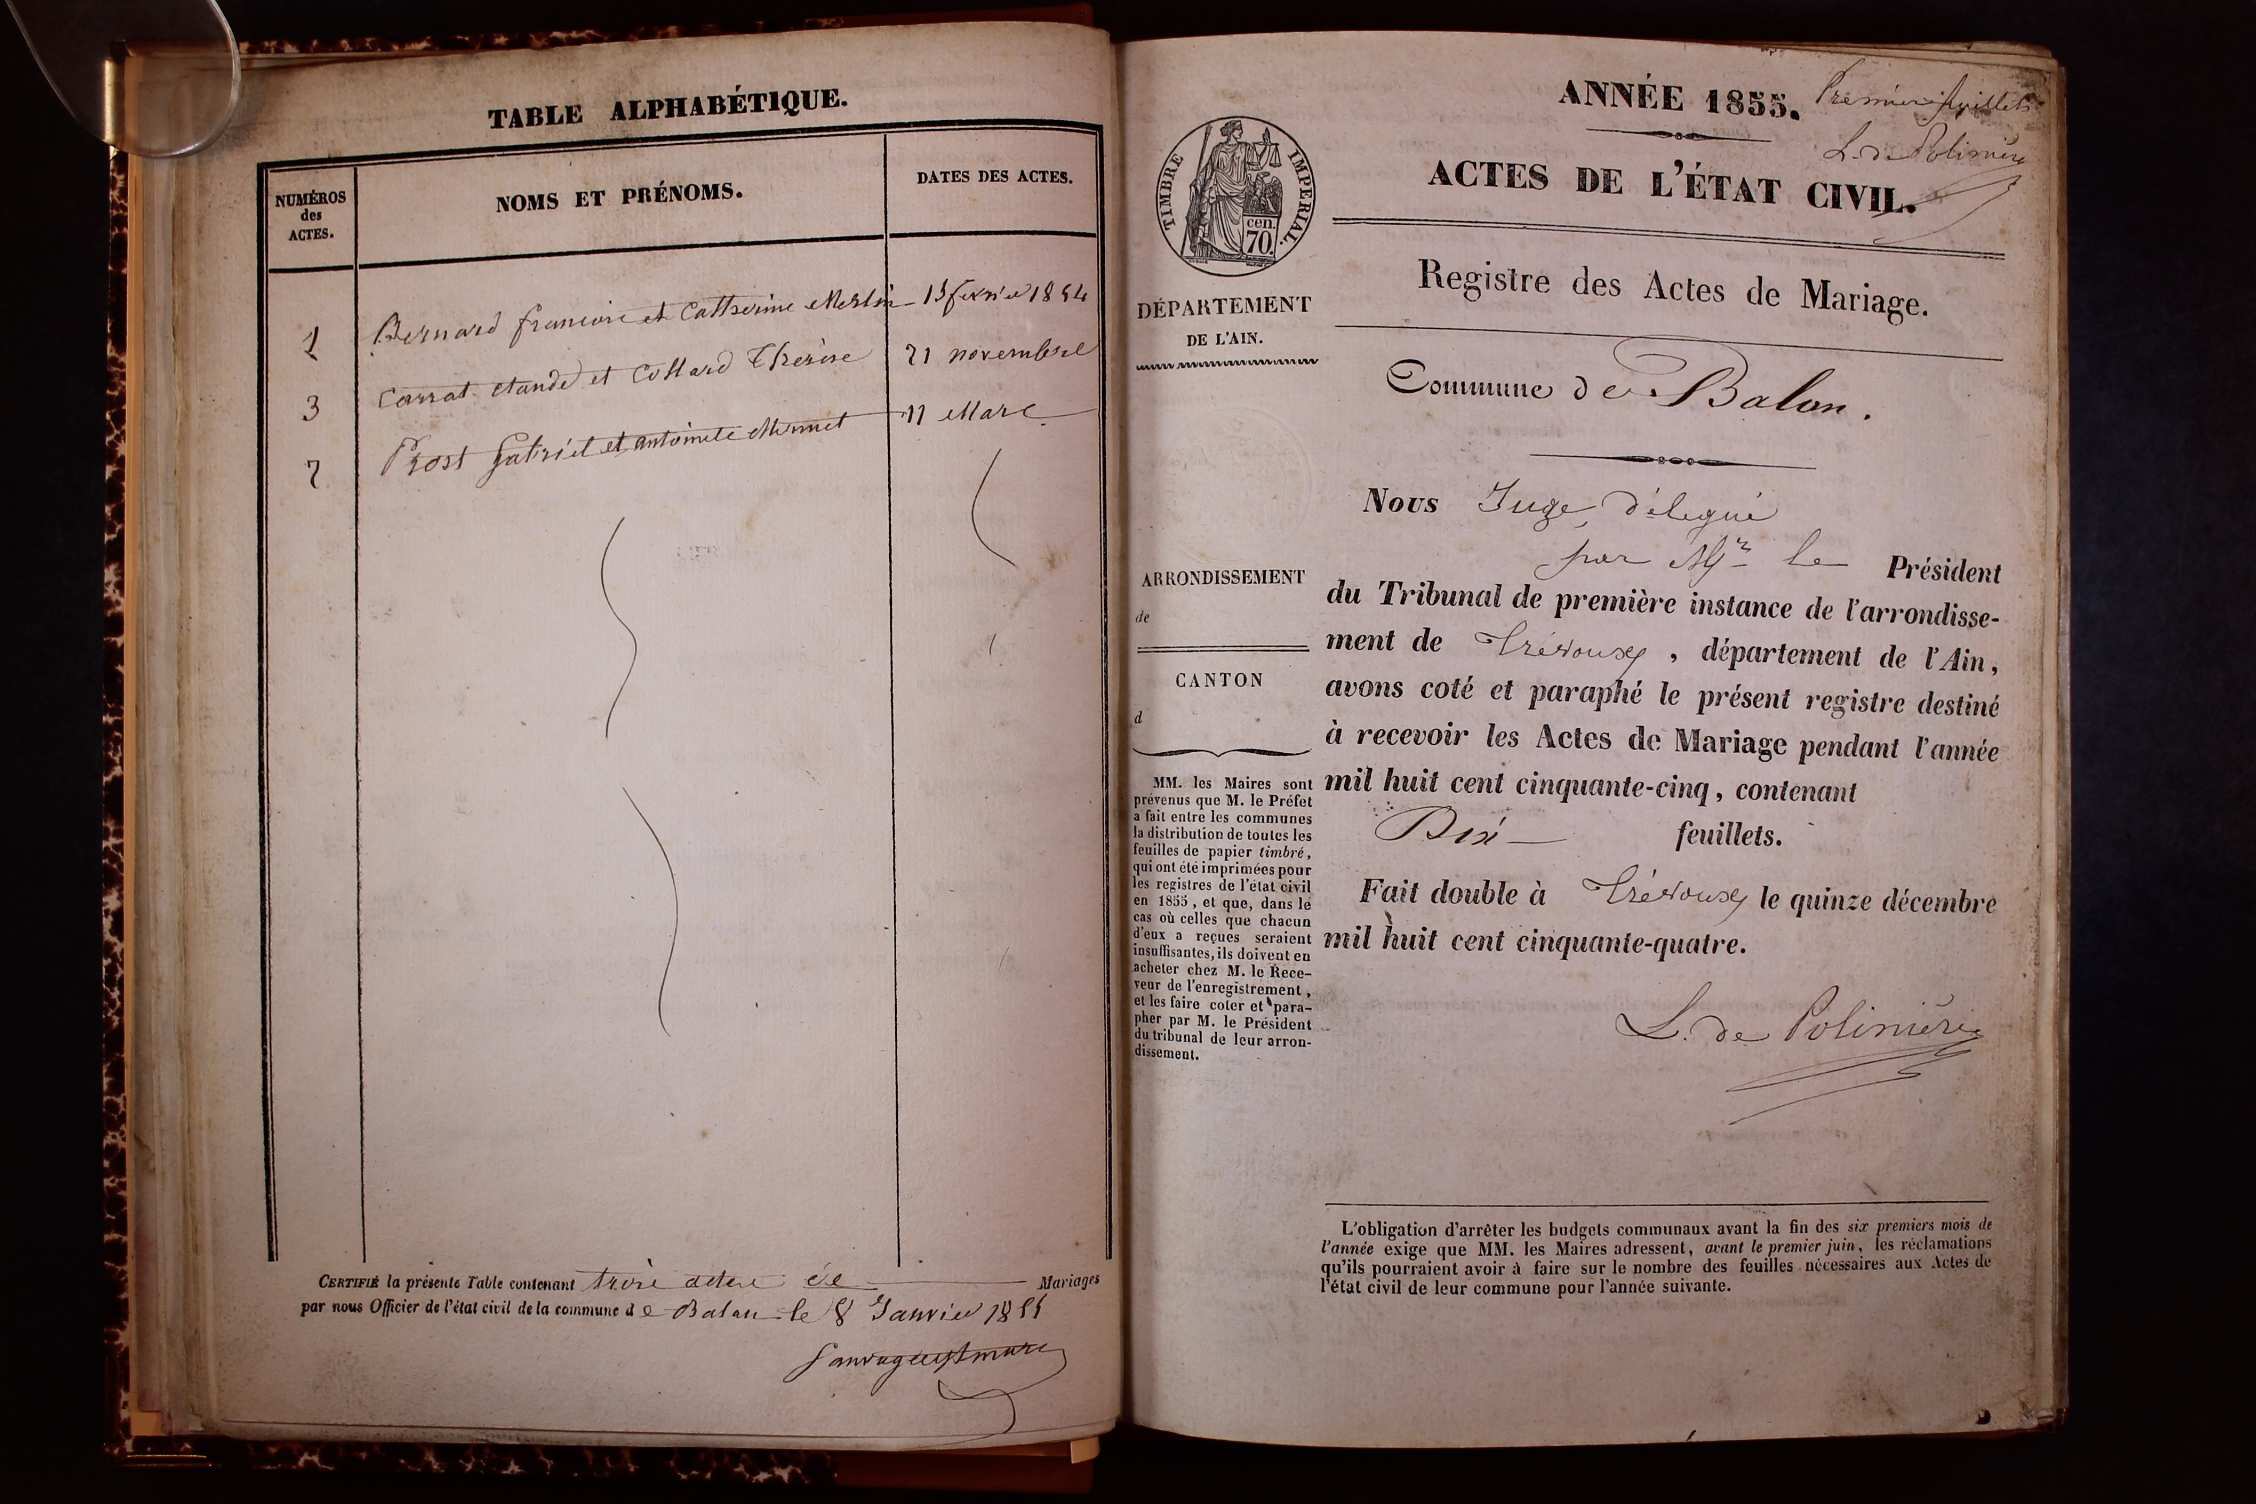 TABLE ALPHABÉTIQUE.
NUMÉROS
des
ACTES.
NOMS ET PRÉNOMS.
DATES DES ACTES.
1 Bernard francoise et Catherine Merlin 13 fevrier 1854
3 Carrat claude et Collard Therèse 21 novembre
2 Prost gabriel et antoinete Mermet 11 Mars
CERTIFIÉ la présente Table contenant trois actes de Mariages
par nous Officier de l'état civil de la commune de Balan le 8 Janvier 1855
ANNÉE 1855.
Premier feuillet
L. de Polinière
ACTES DE L'ÉTAT CIVIL.
TIMBRE IMPERIAL.
cen.
70.
Registre des Actes de Mariage.
DÉPARTEMENT
DE L'AIN.
Commune de Balan.
Nous Juge délegué
par Mr le Président
du Tribunal de première instance de l'arrondisse-
ment de Trévoux, département de l'Ain,
avons coté et paraphé le présent registre destiné
à recevoir les Actes de Mariage pendant l'année
mil huit cent cinquante-cinq, contenant
Dix feuillets.
Fait double à Trévoux le quinze décembre
mil huit cent cinquante-quatre.
L. de Polinière
ARRONDISSEMENT
de
CANTON
d
MM. les Maires sont
prévenus que M. le Préfet
a fait entre les communes
la distribution de toutes les
feuilles de papier timbré,
qui ont été imprimées pour
les registres de l'état civil
en 1855, et que, dans le
cas où celles que chacun
d'eux a reçues seraient
insuffisantes, ils doivent en
acheter chez M. le Rece-
veur de l'enregistrement,
et les faire coter et para-
pher par M. le Président
du tribunal de leur arron-
dissement.
L'obligation d'arrêter les budgets communaux avant la fin des six premiers mois de
l'année exige que MM. les Maires adressent, avant le premier juin, les réclamations
qu'ils pourraient avoir à faire sur le nombre des feuilles nécessaires aux Actes de
l'état civil de leur commune pour l'année suivante.